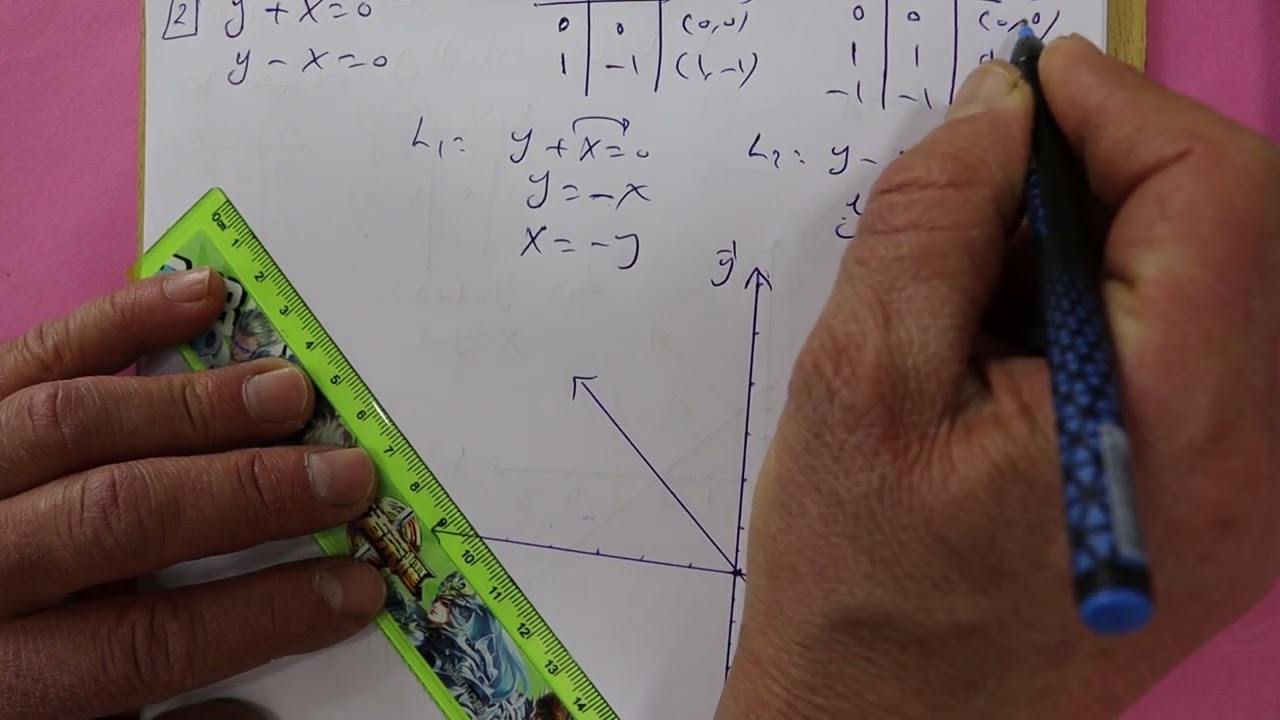 2 y + x = 0
y - x = 0
0 0 (0,0)
1 -1 (1,-1)
0 0 (0,0)
1 1
-1 -1
L1= y + x = 0
y = -x
x = -y
L2: y -
y
0cm 1 2 3 4 5 6 7 8 9 10 11 12 13 14